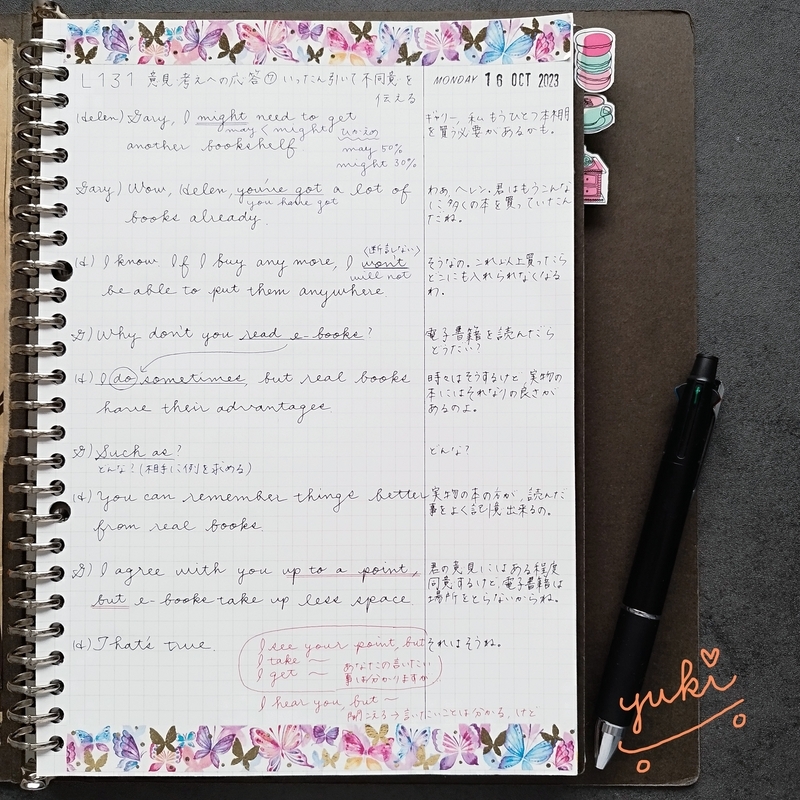 L131 意見・考えへの応答⑦ いったん引いて不同意を
伝える
MONDAY 16 OCT 2023
(Helen) Gary, I might need to get
may < might
another bookshelf.
may 50%
might 30%
ギャリー、私 もうひとつ本棚
を買う必要があるかも。
Gary) Wow, Helen, you've got a lot of
you have got
books already.
わあ ヘレン、君はもうこんな
に多くの本を買っていたん
だね。
(H) I know. If I buy any more, I won't
(断言しない)
will not
be able to put them anywhere.
そうなの。これ以上買ったら
どこにも入れられなくなる
わ。
G) Why don't you read e-books?
電子書籍を読んだら
どうだい?
(H) I do sometimes, but real books
have their advantages.
時々はそうするけど、実物の
本にはそれなりの良さが
あるのよ。
G) Such as?
どんな?(相手に例を求める)
どんな?
(H) You can remember things better
from real books.
実物の本の方が、読んだ
事をよく記憶出来るの。
G) I agree with you up to a point,
but e-books take up less space.
君の意見にはある程度
同意するけど、電子書籍は
場所をとらないからね。
(H) That's true.
それはそうね。
I see your point, but
I take 〜
I get 〜
あなたの言いたい
事は分かりますが
I hear you, but 〜
聞こえる→言いたいことは分かる、けど
yuki